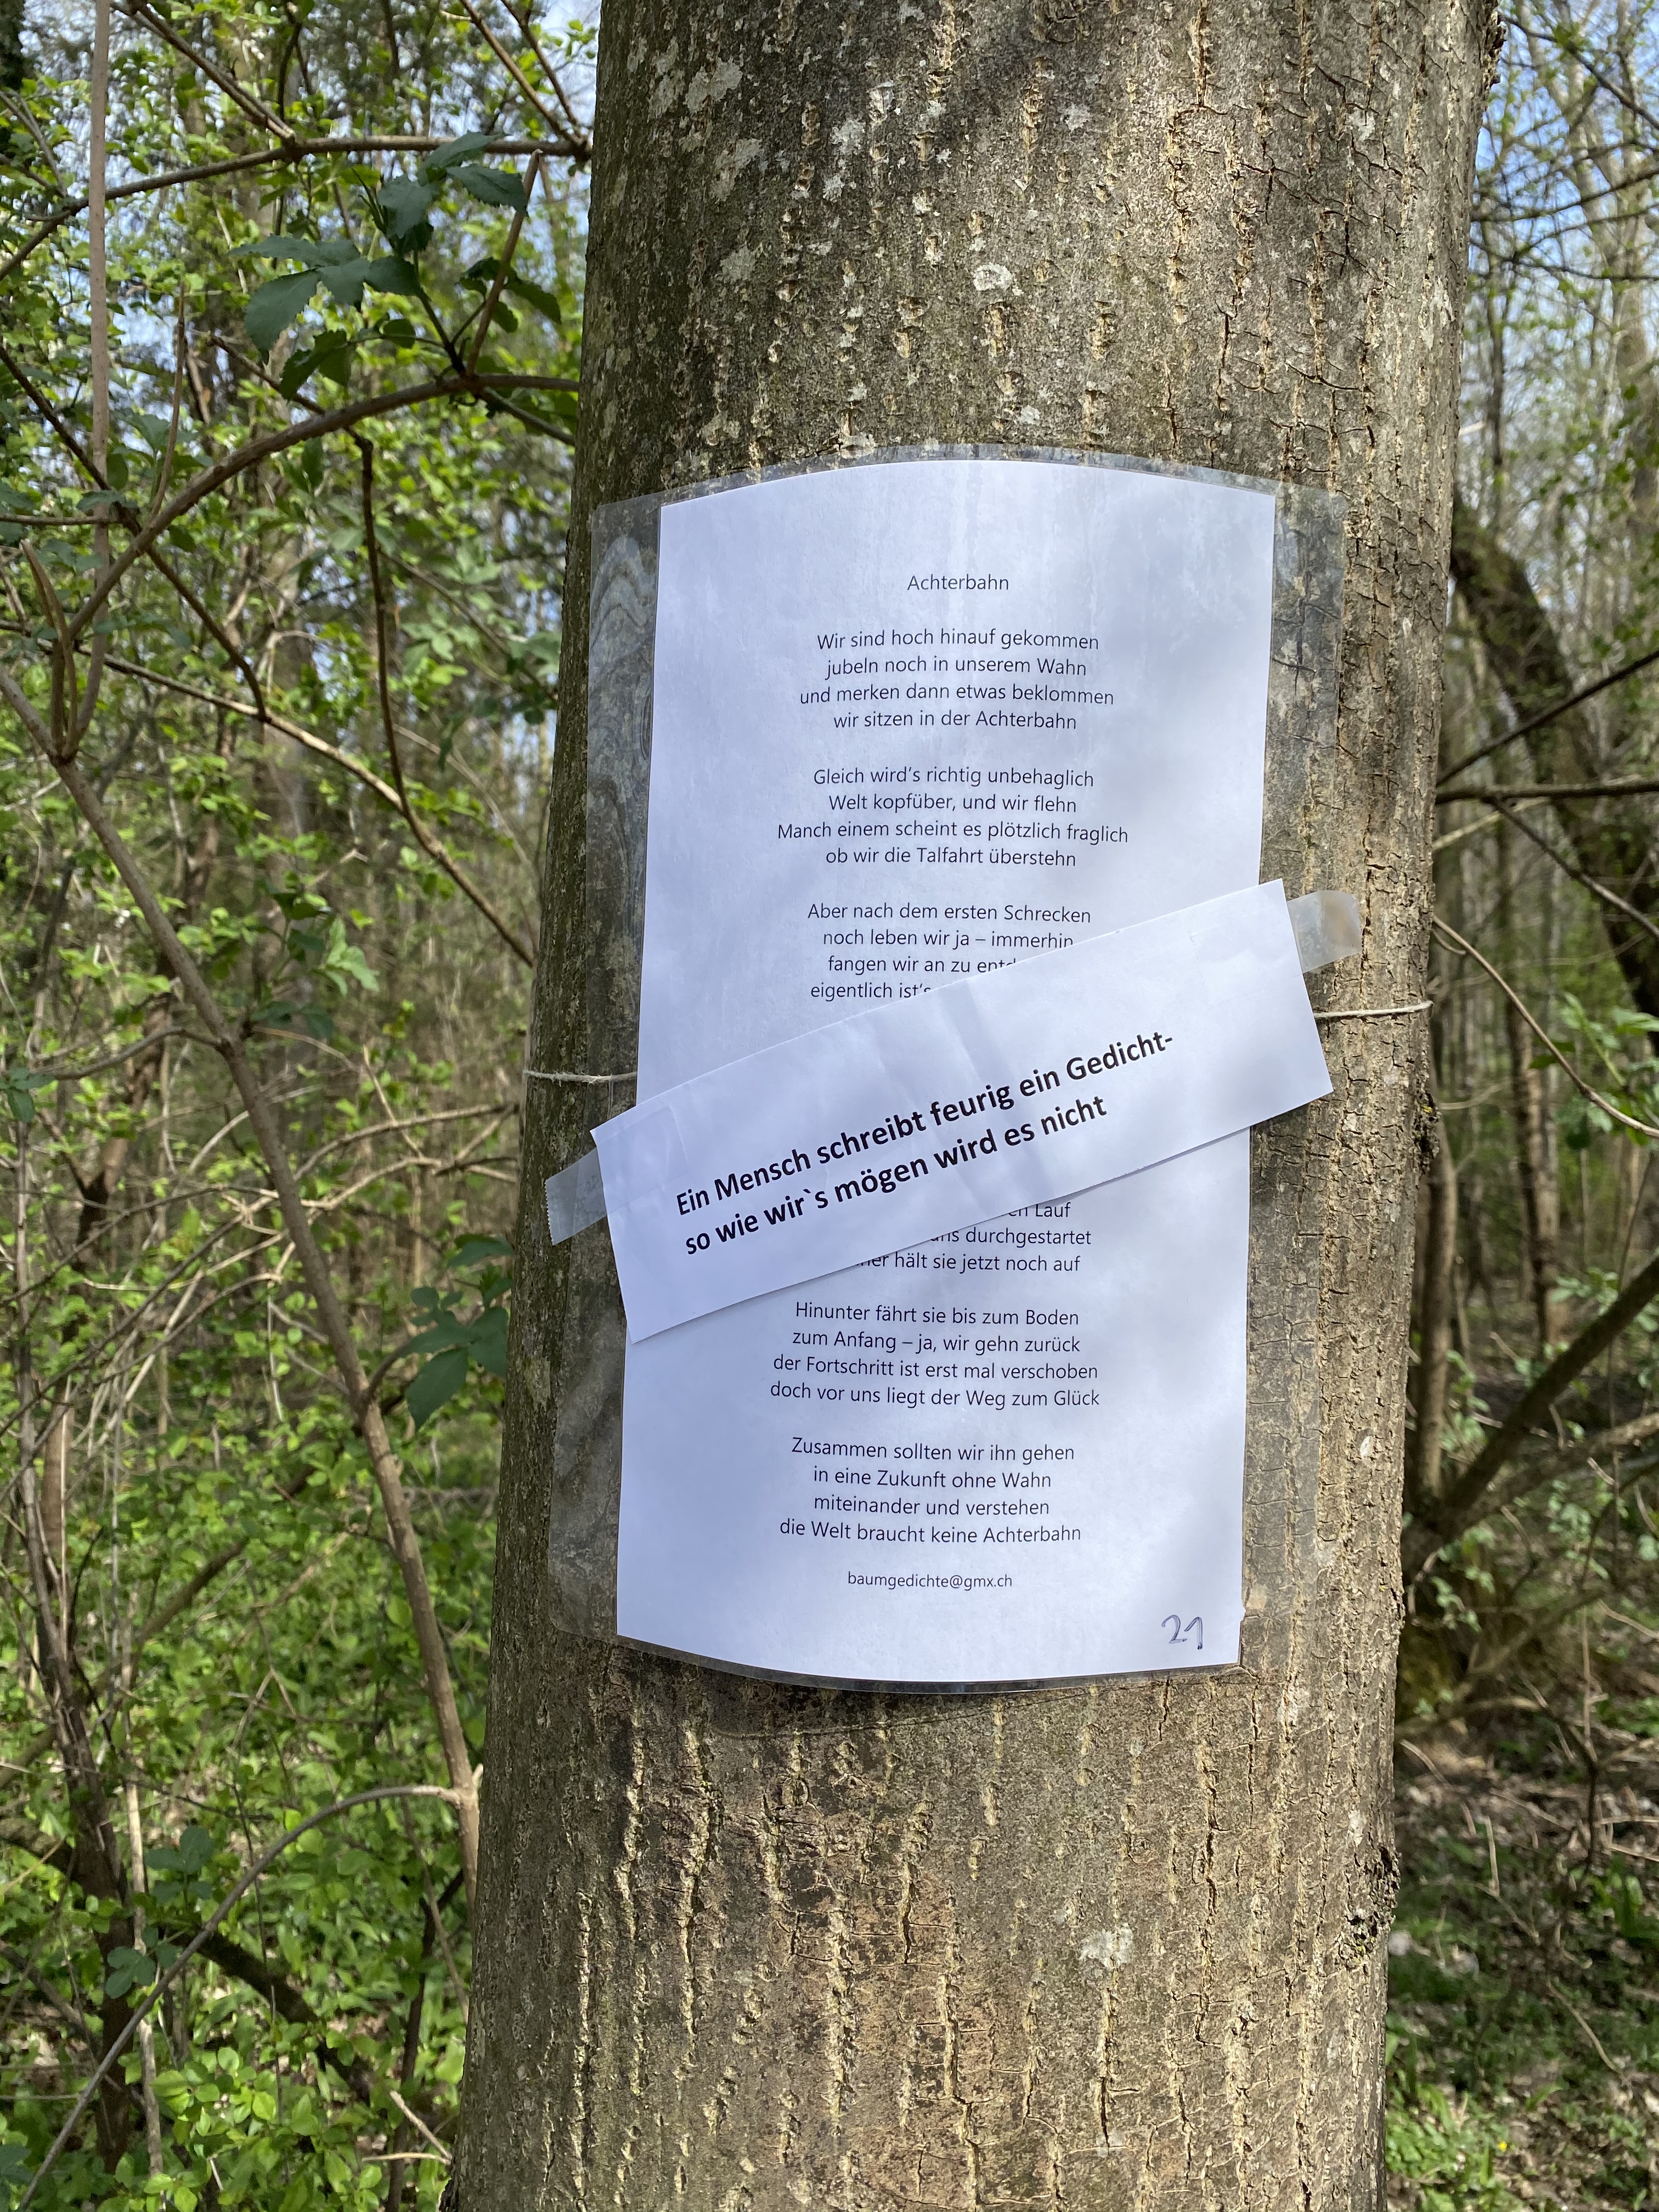 Achterbahn
Wir sind hoch hinauf gekommen
jubeln noch in unserem Wahn
und merken dann etwas beklommen
wir sitzen in der Achterbahn
Gleich wird's richtig unbehaglich
Welt kopfüber, und wir flehn
Manch einem scheint es plötzlich fraglich
ob wir die Talfahrt überstehn
Aber nach dem ersten Schrecken
noch leben wir ja – immerhin
fangen wir an zu
eigentlich ist's
Ein Mensch schreibt feurig ein Gedicht-
so wie wir`s mögen wird es nicht
Lauf
durchgestartet
hält sie jetzt noch auf
Hinunter fährt sie bis zum Boden
zum Anfang – ja, wir gehn zurück
der Fortschritt ist erst mal verschoben
doch vor uns liegt der Weg zum Glück
Zusammen sollten wir ihn gehen
in eine Zukunft ohne Wahn
miteinander und verstehen
die Welt braucht keine Achterbahn
baumgedichte@gmx.ch
21